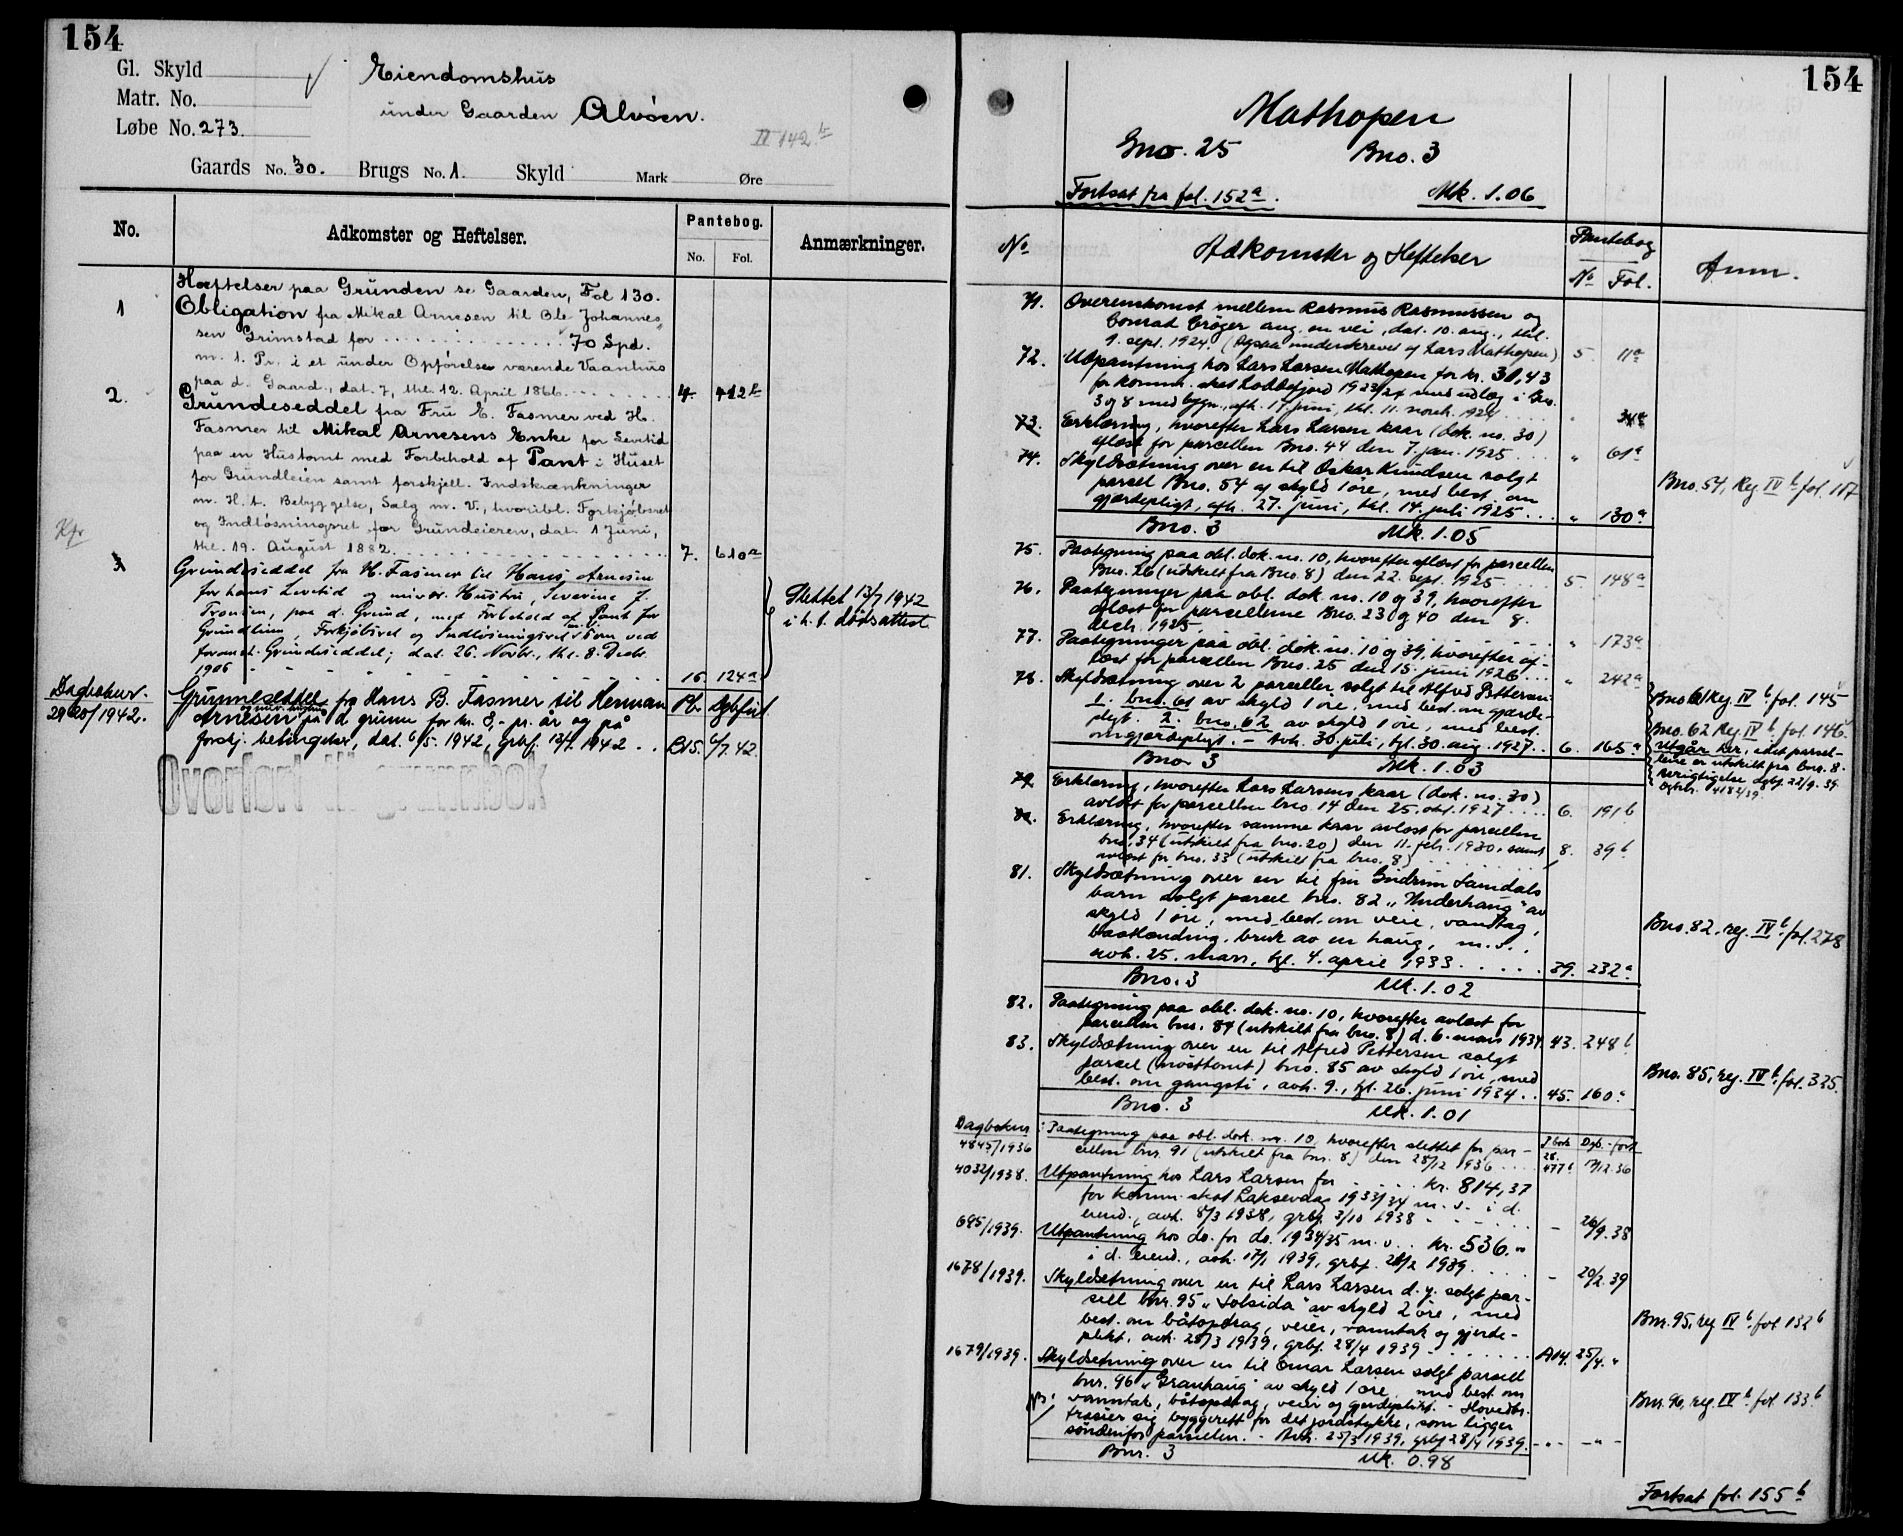 154
Gl. Skyld
Matr. No.
Løbe No. 273.
Eiendomshus
under Gaarden Alvøen.
IV 142 b
Gaards No. 30. Brugs No. 1. Skyld Mark Øre
No. Adkomster og Heftelser. Pantebog. Anmærkninger.
No. Fol.
Hæftelser paa Grunden se Gaarden, Fol 130.
1 Obligation fra Mikal Arnesen til Ole Johannes
sen Grimstad for 70 Spd.
m. 1. Pr. i et under Opførelse værende Vaanhus
paa d. Gaard., dat. 7, thl. 12. April 1866. 4. 412 b
2. Grundeseddel fra Fru E. Fasmer ved H.
Fasmer til Mikal Arnesens Enke for Levetid
paa en Hustomt med Forbehold af Pant i Huset
for Grundleien samt forskjell. Indskrænkninger
m. H. t. Bebyggelse, Salg m. V., hvoribl. Forkjøbsret
og Indløsningsret for Grundeieren, dat. 1 Juni,
Kfr
thl. 19. August 1882. 7. 610 a
3 Grundeseddel fra H. Fasmer til Hans Arnesen
for hans Levetid og miver. Hustru, Severine J.
Tronsen, paa d. Grund, med Forbehold af Pant for
Grundleien, Forkjøbsret og Indløsningsret som ved
foranst. Grundeseddel; dat. 26. Novbr., thl. 8. Decbr.
1906 16. 124 a
Slettet 13/7 1942
i h. t. dødsattest.
Dagboknr.
2920/1942.
Grunnseddel fra Hans B. Fasmer til Herman Pb. Dgbført
Arnesen og hustru på d. grunn for kr. 8,- pr. år og på
forskj. betingelser, dat. 6/5. 1942, grbf. 13/7. 1942 B15. 6/7. 42.
Overført til grunnbok
154
Mathopen
Gno. 25 Bno. 3
Fortsat fra fol. 152 a. Mk. 1.06
No Adkomster og Heftelser Pantebog Anm.
No Fol.
71. Overenskomst mellem Rasmus Rasmussen og
Conrad Krøger ang. en vei, dat. 10. aug., thl.
9. sept. 1924. (Ogsaa underskrevet af Lars Mathopen) 5. 11 a
72. Utpantning hos Lars Larsen Mathopen for kr. 31,43
for komm. skat Loddefjord 1923/24 med udlæg i Bno.
3 og 8 med bygn., afh. 17. juni, thl. 11. novch. 1924 " 34 a
73. Erklæring, hvorefter Lars Larsen kaar (dok. no. 30)
afløst for parcellen Bno. 44 den 7. jan. 1925 " 61 a
74. Skyldsætning over en til Oskar Knudsen solgt
parsel Bno. 54 af skyld 1 øre, med best. om
gjerdepligt, afh. 27. juni, thl. 14. juli 1925 " 130 a
Bno. 54, Reg. IV b fol. 117
Bno. 3 Mk. 1.05
75. Paategning paa obl. dok. no. 10, hvorefter afløst for parcellen
Bno. 26 (udskilt fra Bno. 8) den 22. sept. 1925 5 148 a
76. Paategninger paa obl. dok. no. 10 og 39, hvorefter
afløst for parcellerne Bno. 23 og 40 den 8.
decb. 1925 " 173 a
77. Paategninger paa obl. dok. no. 10 og 39, hvorefter af-
løst for parcellen Bno. 25 den 15. juni 1926 " 242 a
78. Skyldsætning over 2 parceller, solgt til Alfred Pettersen:
1. bno. 61 av skyld 1 øre, med best. om gjærde-
pligt. 2. bno. 62 av skyld 1 øre, med best.
om gjærdepligt. - Avh. 30. juli, tgl. 30. aug. 1927. 6. 165 a
Bno 61 Reg. IV b. fol. 145
Bno. 62 Reg. IV b fol. 146.
utgår her, idet parsel-
lene er utskilt fra bnr. 8.
Berigtigelse dgbf. 22/9. 39.
dgbnr. 4182/39.
Bno. 3 Mk. 1.03
79. Erklæring, hvorefter Lars Larsens kaar (dok. no. 30)
avløst for parcellen bno. 14 den 25. okt. 1927 6. 191 b
80. Erklæring, hvorefter samme kaar avløst for parcellen
bno. 34 (utskilt fra bno. 20) den 11. febr. 1930, samt 8. 39 b.
avløst for bno. 33 (utskilt fra bno. 8)
81. Skyldsætning over en til fru Gudrun Samdals
barn solgt parcel bno. 82 "Underhaug" av
skyld 1 øre, med best. om veie, vandtag,
baatlanding, bruk av en haug, m. v.,
avh. 25. mars, tgl. 4. april 1933 39. 232 a.
Bno. 82, reg. IV b. fol. 278
Bno. 3 Mk. 1.02
82. Paategning paa obl. dok. no. 10, hvorefter avløst for
parcellen bno. 84 (utskilt fra bno. 8) d. 6. mars 1934. 43. 248 b
83. Skyldsætning over en til Alfred Pettersen solgt
parcel (nøsttomt) bno. 85 av skyld 1 øre, med
best. om gangsti, avh. 9., tgl. 26. juni 1934 45. 160 a
Bno. 85, reg. IV b. fol. 325.
Bno. 3 Mk. 1.01
Dagboknr.
4845/1936 Paategning paa obl. dok. nr. 10, hvorefter slettet for par- P.bok Dgb.-ført
cellen bnr. 91 (utskilt fra bnr. 8) den 28/12 1936 28. 477 b 17/12. 36
4032/1938. Utpantning hos Lars Larsen for kr. 814,37
for komm. skat Laksevaag 1933/34 m. v. i d.
eiend., avh. 8/3 1938, grbf. 3/10 1938 - 26/9. 38
695/1939. Utpantning hos do. for do. 1934/35 m. v. kr. 536.00
i d. eiend., avh. 17/1 1939, grbf. 28/2 1939. - 20/2. 39
1678/1939. Skyldsetning over en til Lars Larsen d. y. solgt par-
sell bnr. 95 "Solsida" av skyld 2 øre, med
best. om båtopdrag, veier, vanntak og gjerde-
plikt, avh. 25/3 1939, grbf. 28/4 1939 A14. 25/4. "
Bnr. 95, reg IV b. fol 132 b
1679/1939. Skyldsetning over en til Einar Larsen solgt parsell
bnr. 96 "Granhaug" av skyld 1 øre, med best. om
NB! vanntak, båtopdrag, veier og gjerdeplikt. - Hovedbr.
frasier sig byggerett for det jordstykke, som ligger
søndenfor parsellen. - Avh. 25/3 1939, grbf 28/4 1939. -"- -"-
Bnr. 96, reg IV b fol 133 b
Bnr. 3 Mk. 0.98
Fortsat fol. 155 b